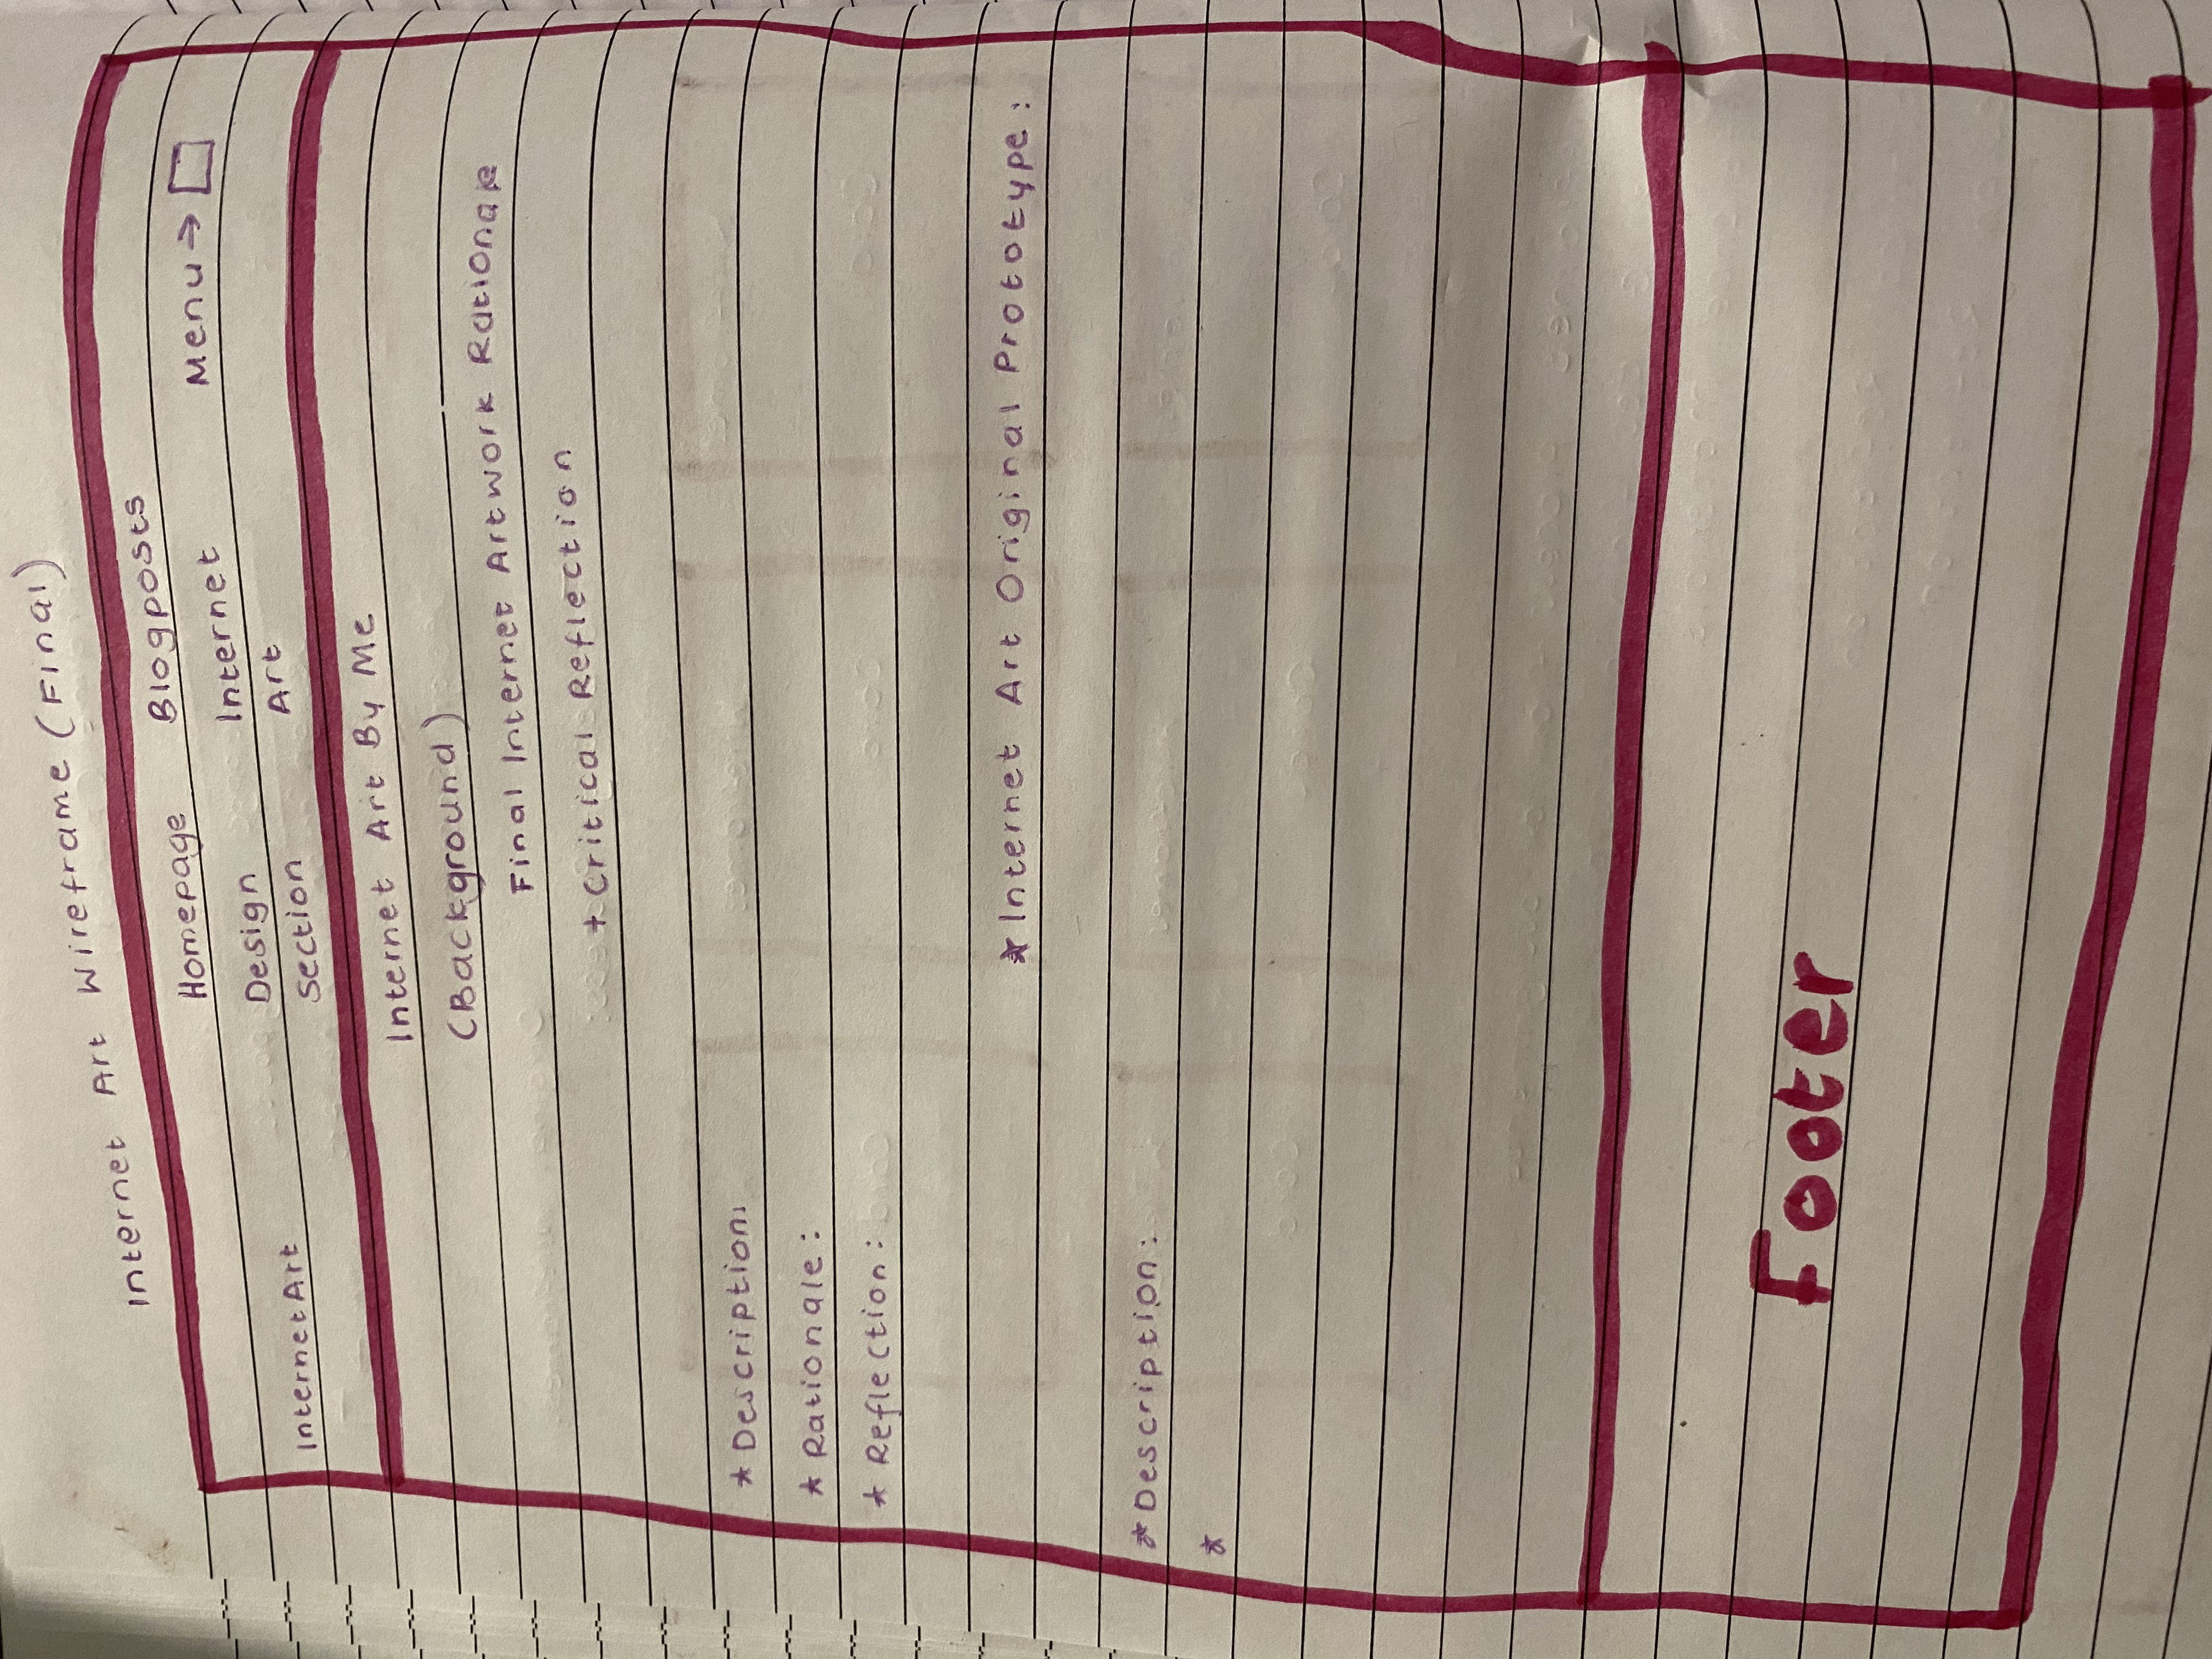 Internet Art Wireframe (Final)
Homepage Blogposts
Menu →
Design Internet
InternetArt Section Art
Internet Art By Me
(Background)
Final Internet Artwork Rationale
+ Critical Reflection
* Description:
* Rationale:
* Reflection:
* Internet Art Original Prototype:
* Description:
*
Footer